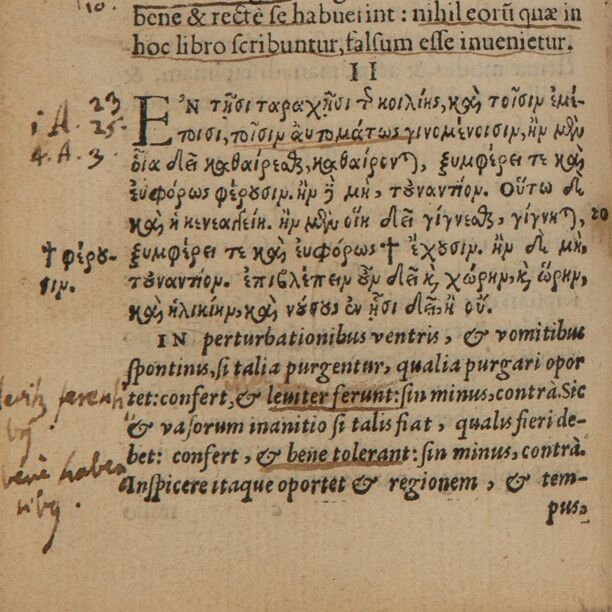 bene & recte se habuerint : nihil eorũ quæ in
hoc libro scribuntur, falsum esse inuenietur.
II
ἘΝ τῇσι ταραχῇσι τ͂ κοιλίης, καὶ τοῖσιν ἐμέ-
τοισι, τοῖσιν αὐτομάτως γινομένοισιν, ἢν μὲν
οἷα δεῖ καθαίρεσθαι, καθαίρωνται, ξυμφέρει τε καὶ
εὐφόρως φέρουσιν. ἢν ὃ μὴ, τοὐναντίον. Οὕτω δὲ
καὶ ἡ κενεαγγείη. ἢν μὲν οἵη δεῖ γίγνεσθαι, γίγνηται,
20
ξυμφέρει τε καὶ εὐφόρως † ἔχουσιν. ἢν δὲ μὴ,
† φέρου-
σιν.
τοὐναντίον. ἐπιβλέπειν οὖν δεῖ κ̀ χώρην, κ̀ ὥρην,
καὶ ἡλικίην, καὶ νούσους ἐν ᾗσι δεῖ, ἢ οὔ.
IN perturbationibus ventris, & vomitibus
spontinus, si talia purgentur, qualia purgari opor
tet: confert, & leuiter ferunt: sin minus, contrà. Sic
& vasorum inanitio si talis fiat, qualis fieri de-
bet: confert, & bene tolerant: sin minus, contrà.
Inspicere itaque oportet & regionem, & tem-
pus,
1 A. 23
25.
4. A. 3
bene haben
tibq.